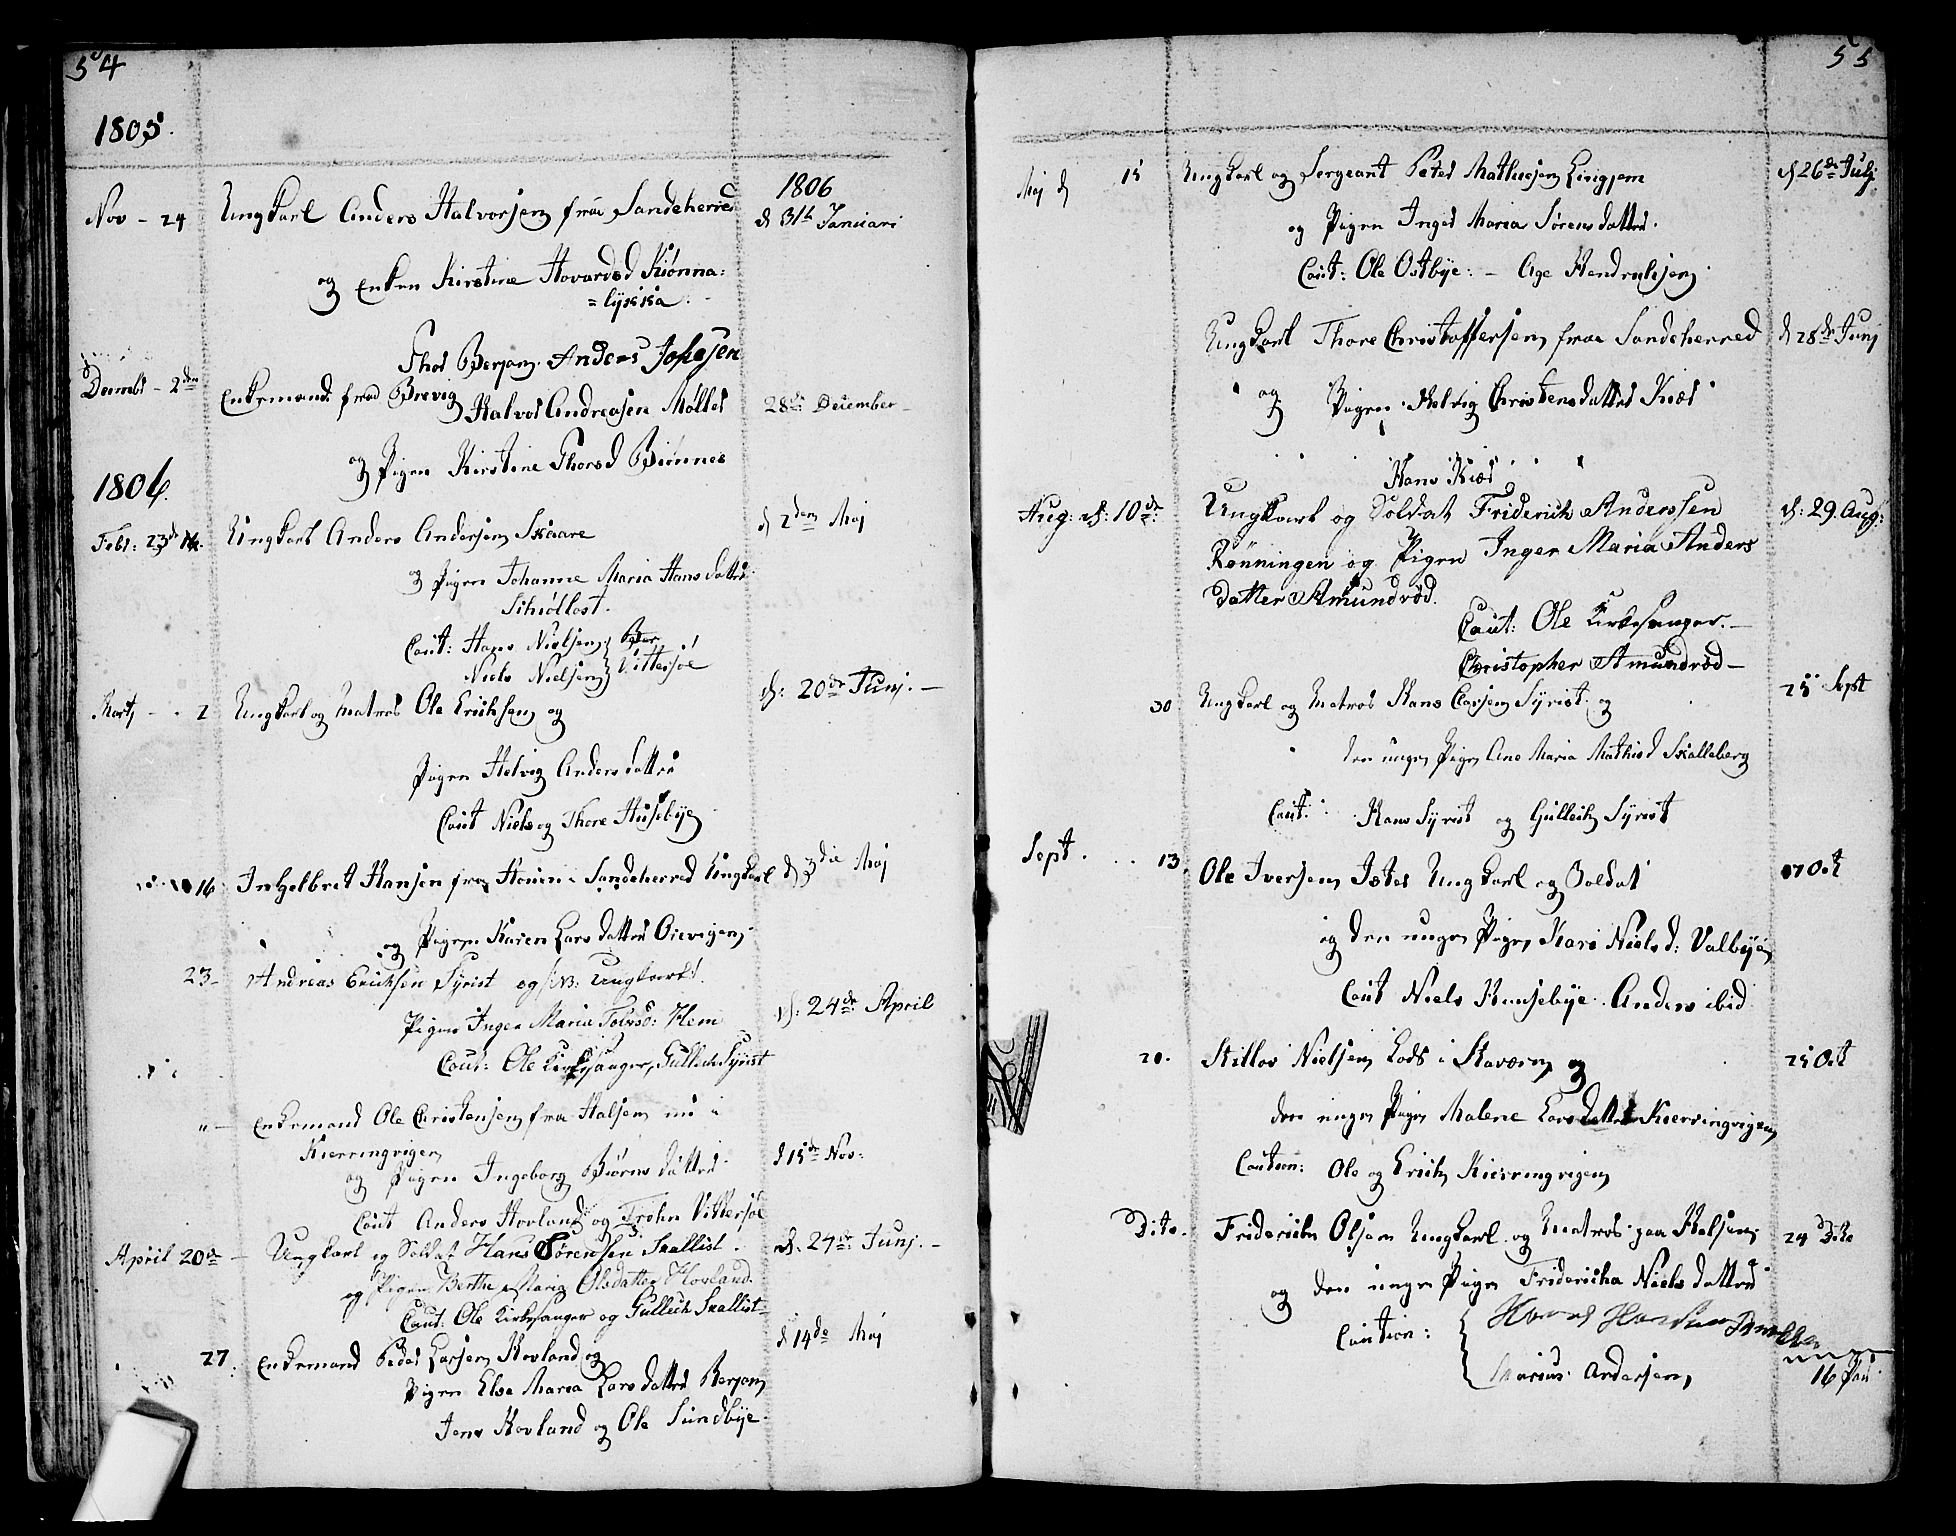 54
1805.
1806
Nov - 24 Ungkarl Anders Halvorsen fraa Sandeherred d 31te Januari
og Enken Kirstine Hovardsd Kiønna:
=lykka.
Thor Bergan. Anders Johnsen
Decembr - 2den Enkemand fraa Brevig Halvor Andreasen Møller 28de December
og Pigen Kirstine Thorsd Biønnes
1806.
Febr: 23de Ungkarl Anders Andersen Skaare d 2den Maj
og Pigen Johanne Maria Hansdatter
Schiøllost.
Caut: Hans Nielsen
Niels Nielsen Vittersøe
Martj - 2 Ungkarl og Matros Ole Erichsen og d: 20de Junj.
Pigen Helvig Andersdatter
Caut Niels og Thore Husebye
16 Ingelbret Hansen fra Hemin i Sandeherred Ungkarl d 3die Maj
og Pigen Karen Larsdatter Oievigen
23- Andreas Erichsen Syrist og /NB: Ungkarl/
Pigen Inger Maria Tolvsd: Hem d: 24de April
Caut: Ole Kirkesanger, Gullich Syrist
" - Enkemand Ole Christensen fra Halsen nu i
Kierringvigen
og Pigen Ingeborg Biørnsdatter d 15de Nov:
Caut Anders Hovland og Trohn Vittersøe
April 20de - Ungkarl og Soldat Hans Sørensen Skallist d. 24de Junj. -
og Pigen Berthe Maria Olsdatter Hovland.
Caut. Ole Kirkesanger og Gullich Skallist-
27. Enkemand Peder Larsen Hovland og d 14de Maj
Pigen Else Maria Larsdatter Bergan
Jens Hovland og Ole Sundbye.
55
Maj d 15 Ungkarl og Sergeant Peter Mathiesen d 26de Julj
og Pigen Inger Maria Sørensdatter.
Caut: Ole Ostbye: - Age Hendrichsen.
Ungkarl Thore Christoffersen fraa Sandeherred d 28de Junj
og Pigen Helvig Christensdatter Kiær
Hans Kiær
Aug: d: 10de: Ungkarl og Soldat Friderich Anderssen d: 29. Aug:
Rønningen og Pigen Inger Maria Anders
datter Amundrød.
Caut: Ole Kirkesanger. -
Christopher Amundrød -
30 Ungkarl og Matros Hans Larsen Syrist og 25 Sept
den unge Pige Ane Maria Mathisd Skalleberg
Caut: Hans Syrist og Gullich Syrist
Sept. 13. Ole Iversen Istre Ungkarl og Soldat 17 Oct
og den unge Pige Kari Nielsd: Valbye
Caut Niels Hunsebye. Anders ibid
20. Stillov Nielsen Lods i Staværn og 25 Oct
den unge Pige Malene Larsdatter Kierringvigen
Caution: Ole og Erich Kierringvigen
Dito. Friderich Olsen Ungkarl og Matros paa Halsen 24 Dito
og den unge Pige Fridericha Nielsdatter
Caution:
Marius Andersen
16 Par